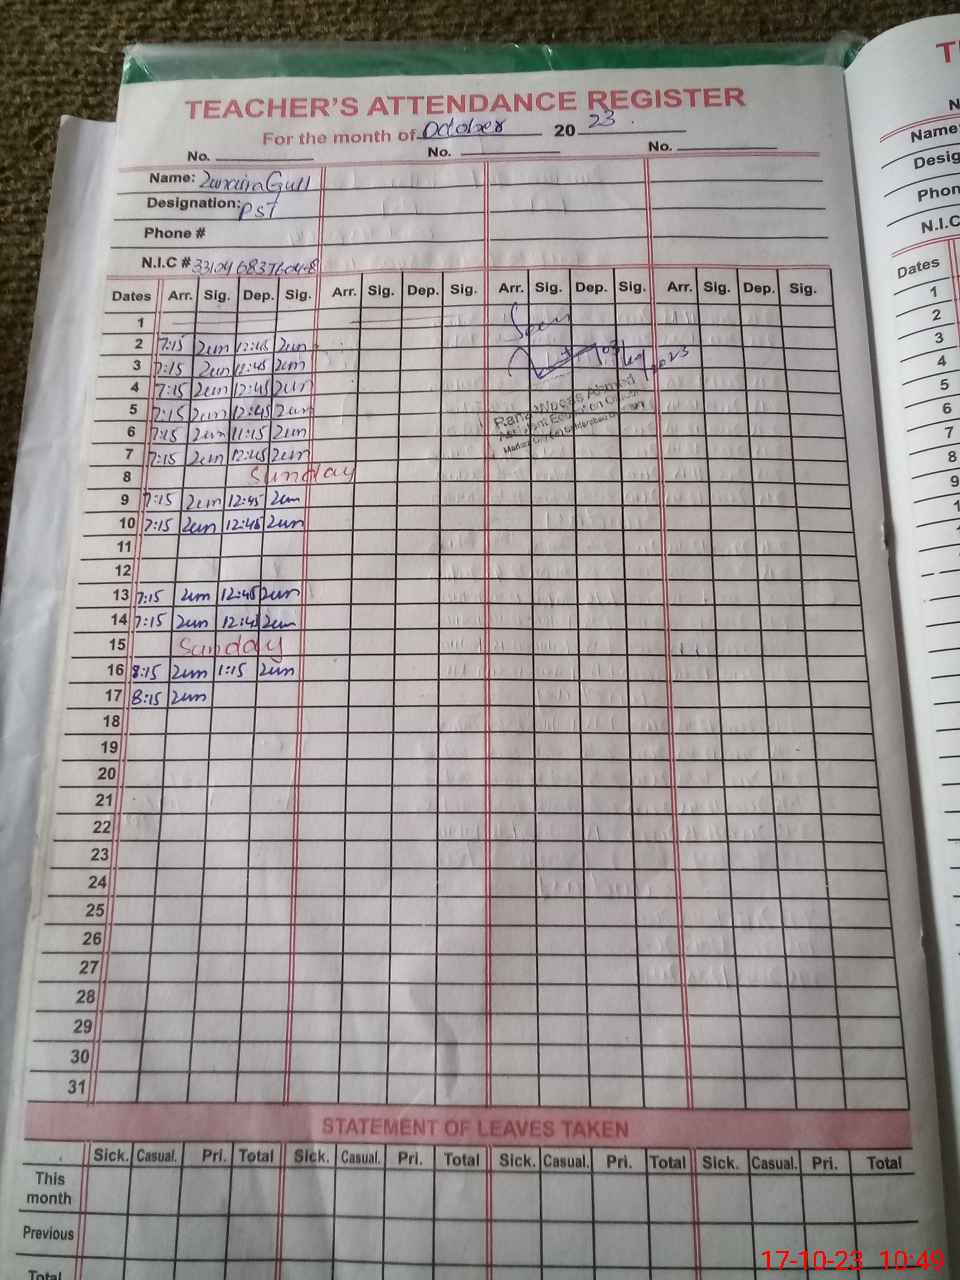 TEACHER'S ATTENDANCE REGISTER
For the month of October 2023.
No. No. No.
Name: Zunaira Gull
Designation: PST
Phone #
N.I.C #
Dates Arr. Sig. Dep. Sig. Arr. Sig. Dep. Sig. Arr. Sig. Dep. Sig. Arr. Sig. Dep. Sig.
1
2 7:15 Zun 12:45 Zun Seen
3 7:15 Zun 12:45 Zun
4 7:15 Zun 12:45 Zun Rana Ahmed
5 7:15 Zun 12:45 Zun Assistant Education Officer
6 7:15 Zun 11:15 Zun
7 7:15 Zun 12:45 Zun
8 Sunday
9 7:15 Zun 12:45 Zun
10 7:15 Zun 12:45 Zun
11
12
13 7:15 Zun 12:45 Zun
14 7:15 Zun 12:45 Zun
15 Sunday
16 8:15 Zun 1:15 Zun
17 8:15 Zun
18
19
20
21
22
23
24
25
26
27
28
29
30
31
STATEMENT OF LEAVES TAKEN
Sick. Casual. Pri. Total Sick. Casual. Pri. Total Sick. Casual. Pri. Total Sick. Casual. Pri. Total
This month
Previous
Total
Name:
N.I.C
Dates
1
2
3
4
5
6
7
8
9
17-10-23 10:49